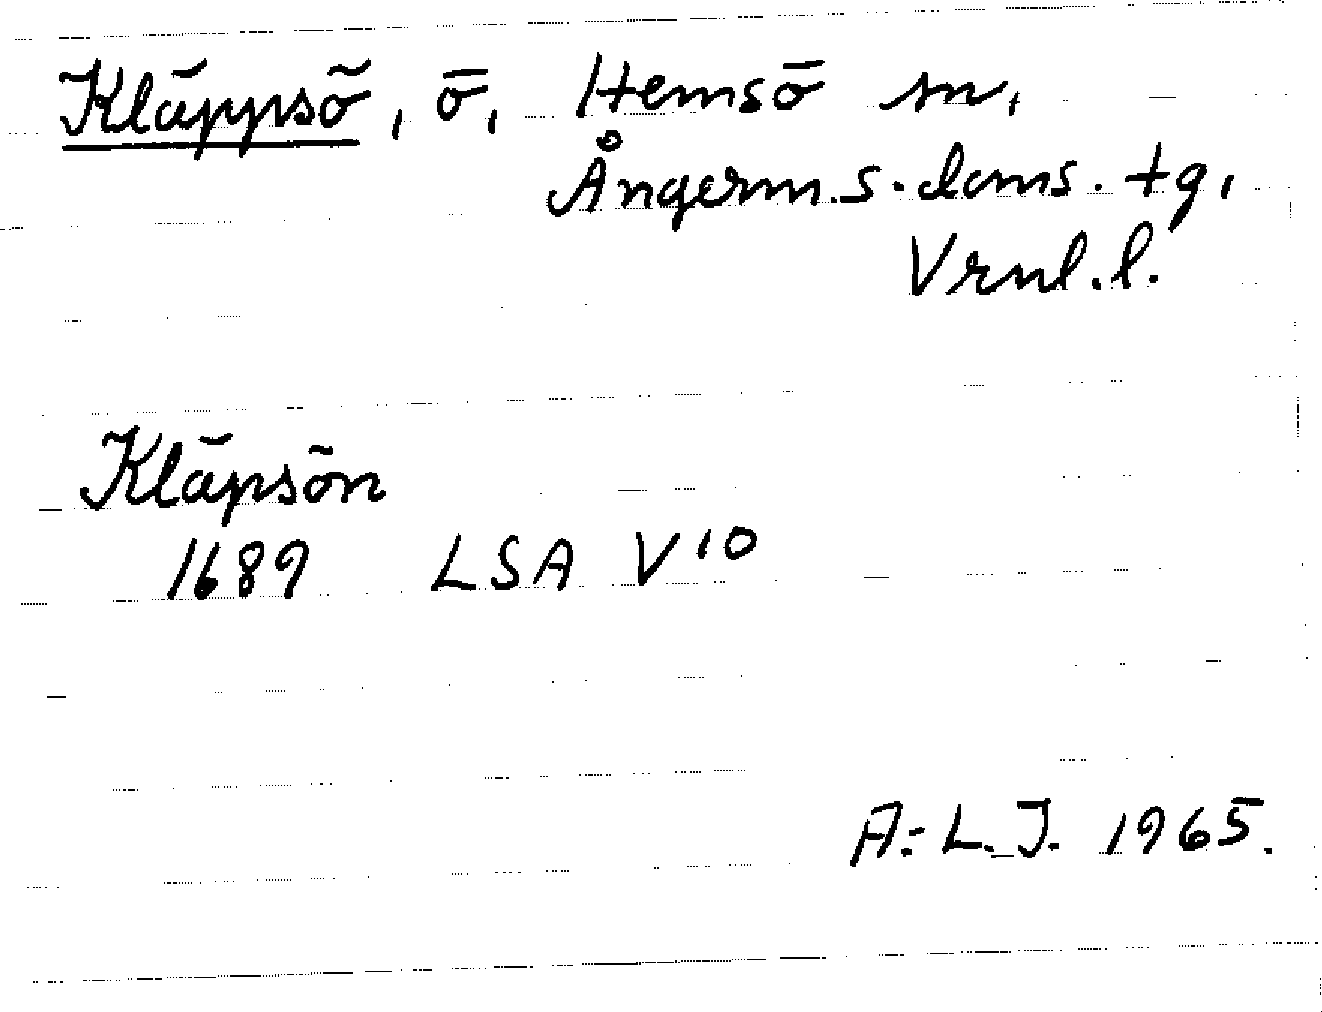 Kläppsö, ö, Hemsö sn,
Ångerm.s. doms. tg,
Vrnl. l.
Kläpsön
1689 LSA V10
A.-L. J. 1965.